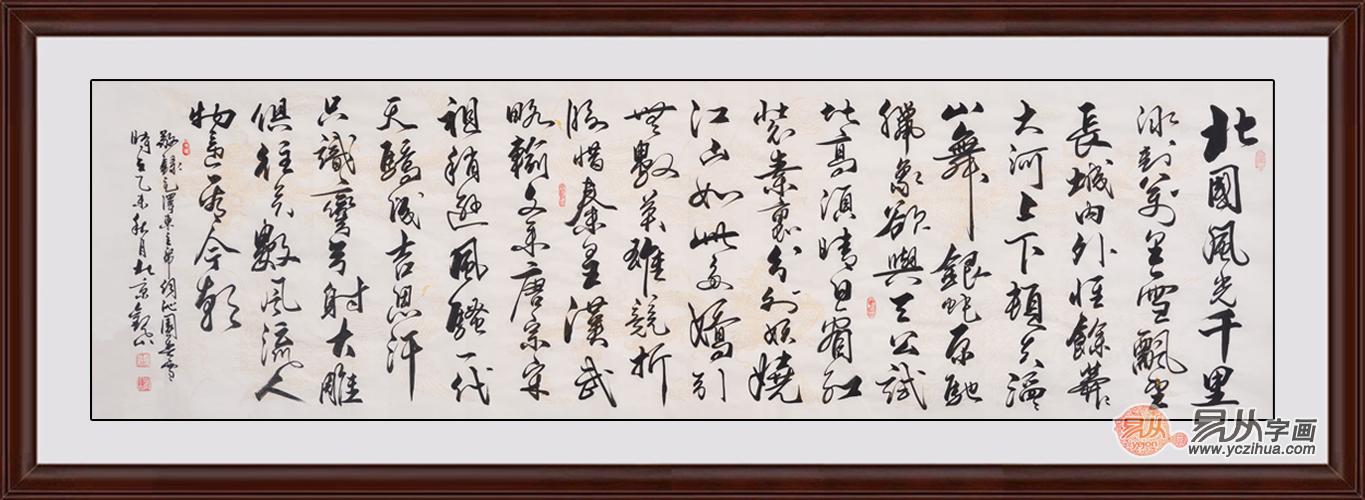 北國風光千里
冰封萬里雪飄望
長城內外惟餘莽〻
大河上下頓失滔〻
山舞銀蛇原馳
臘象欲與天公試
比高須晴日看紅
裝素裹分外妖嬈
江山如此多嬌引
無數英雄競折
腰惜秦皇漢武
略輸文采唐宗宋
祖稍遜風騷一代
天驕成吉思汗
只識彎弓射大雕
俱往矣數風流人
物還看今朝
敬錄毛澤東主席詞沁園春雪
時在乙未秋月北京
易从
yejon
易从字画
www.yczihua.com